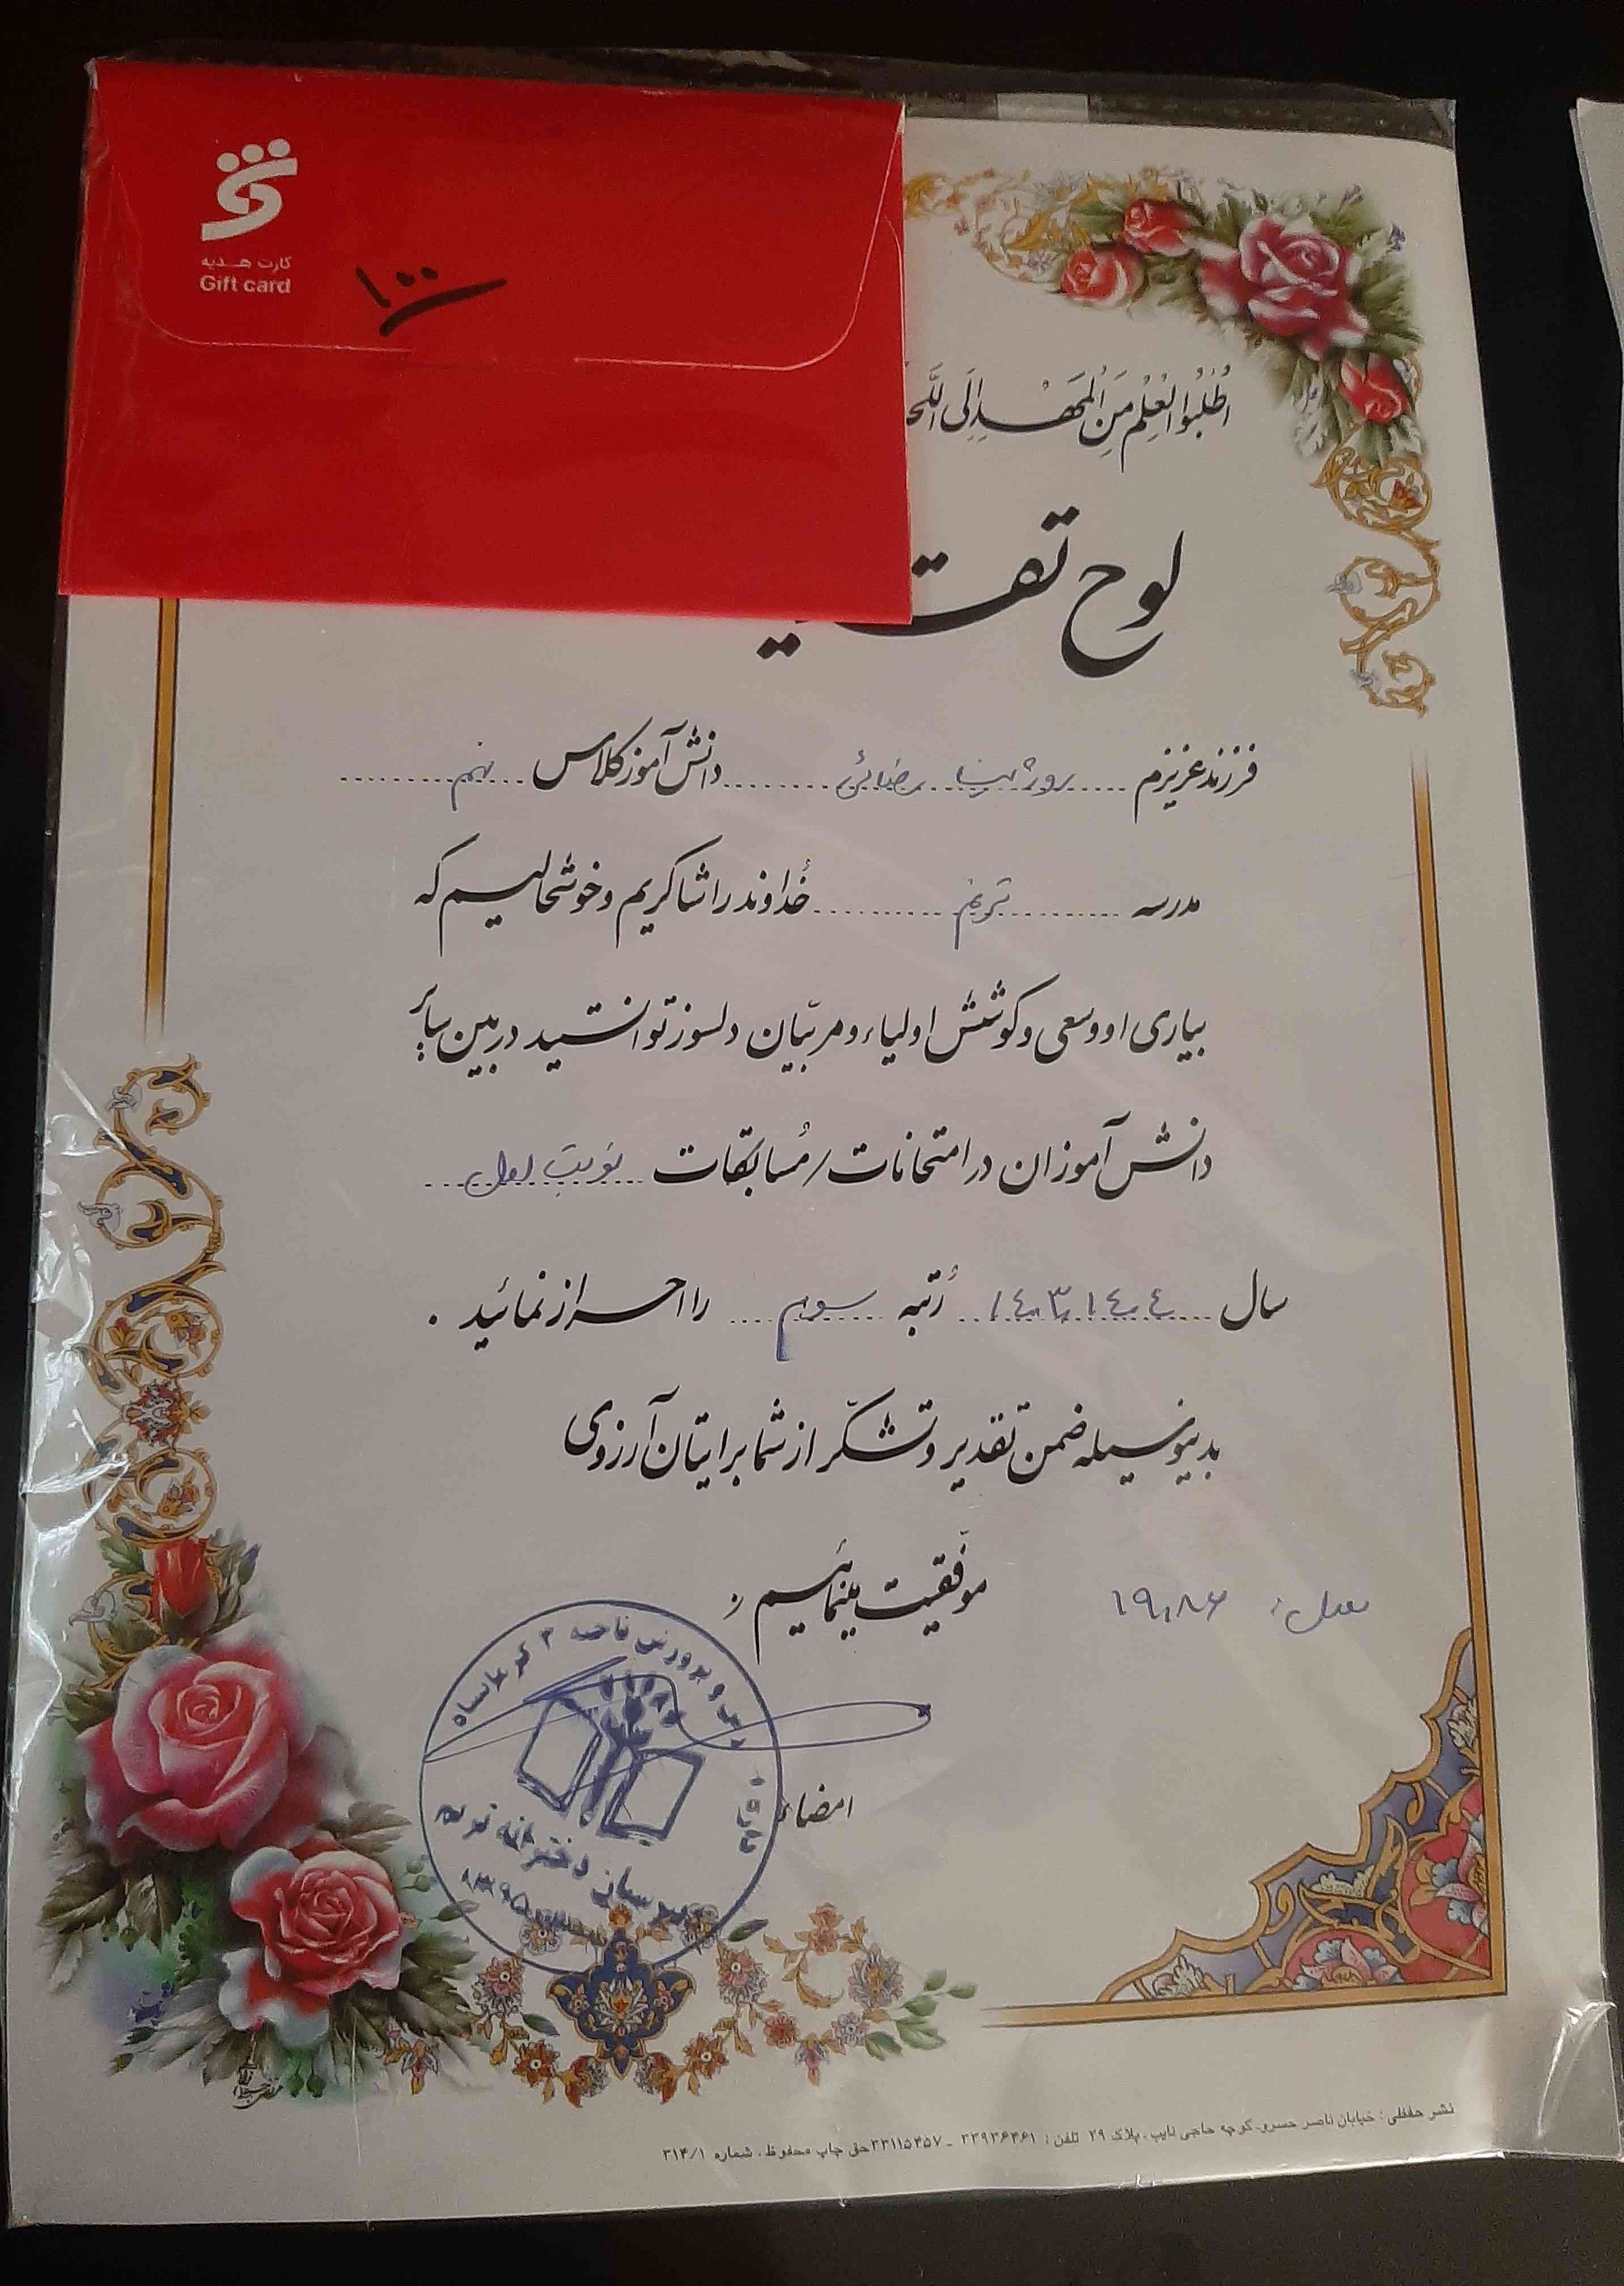 کارت هدیه
Gift card
۱۰۰
اُطْلُبُوا الْعِلْمَ مِنَ الْمَهْدِ اِلَی اللَّحْ
لوح تقدیـ
فرزند عزیزم روژینا رضائی دانش آموز کلاس نهم
مدرسه ترنم خداوند را شاکریم و خوشحالیم که
بیاری او و سعی و کوشش اولیاء و مربّیان دلسوز توانستید در بین سایر
دانش آموزان در امتحانات / مُسابقات نوبت اول
سال ۱۴۰۳،۱۴۰۴ رُتبه سوم را احراز نمائید .
بدینوسیله ضمن تقدیر و تشکّر از شما برایتان آرزوی
موفّقیت مینمائیم
معدل: ۱۹،۸۶
و پرورش ناحیه ۳ کرمانشاه
دخترانه ترنم
امضاء
نشر حافظی : خیابان ناصر خسرو، کوچه حاجی نایب، پلاک ۲۹ تلفن : ۳۳۹۳۶۴۶۱ - ۳۳۱۱۵۴۵۷ حق چاپ محفوظ . شماره ۳۱۴/۱